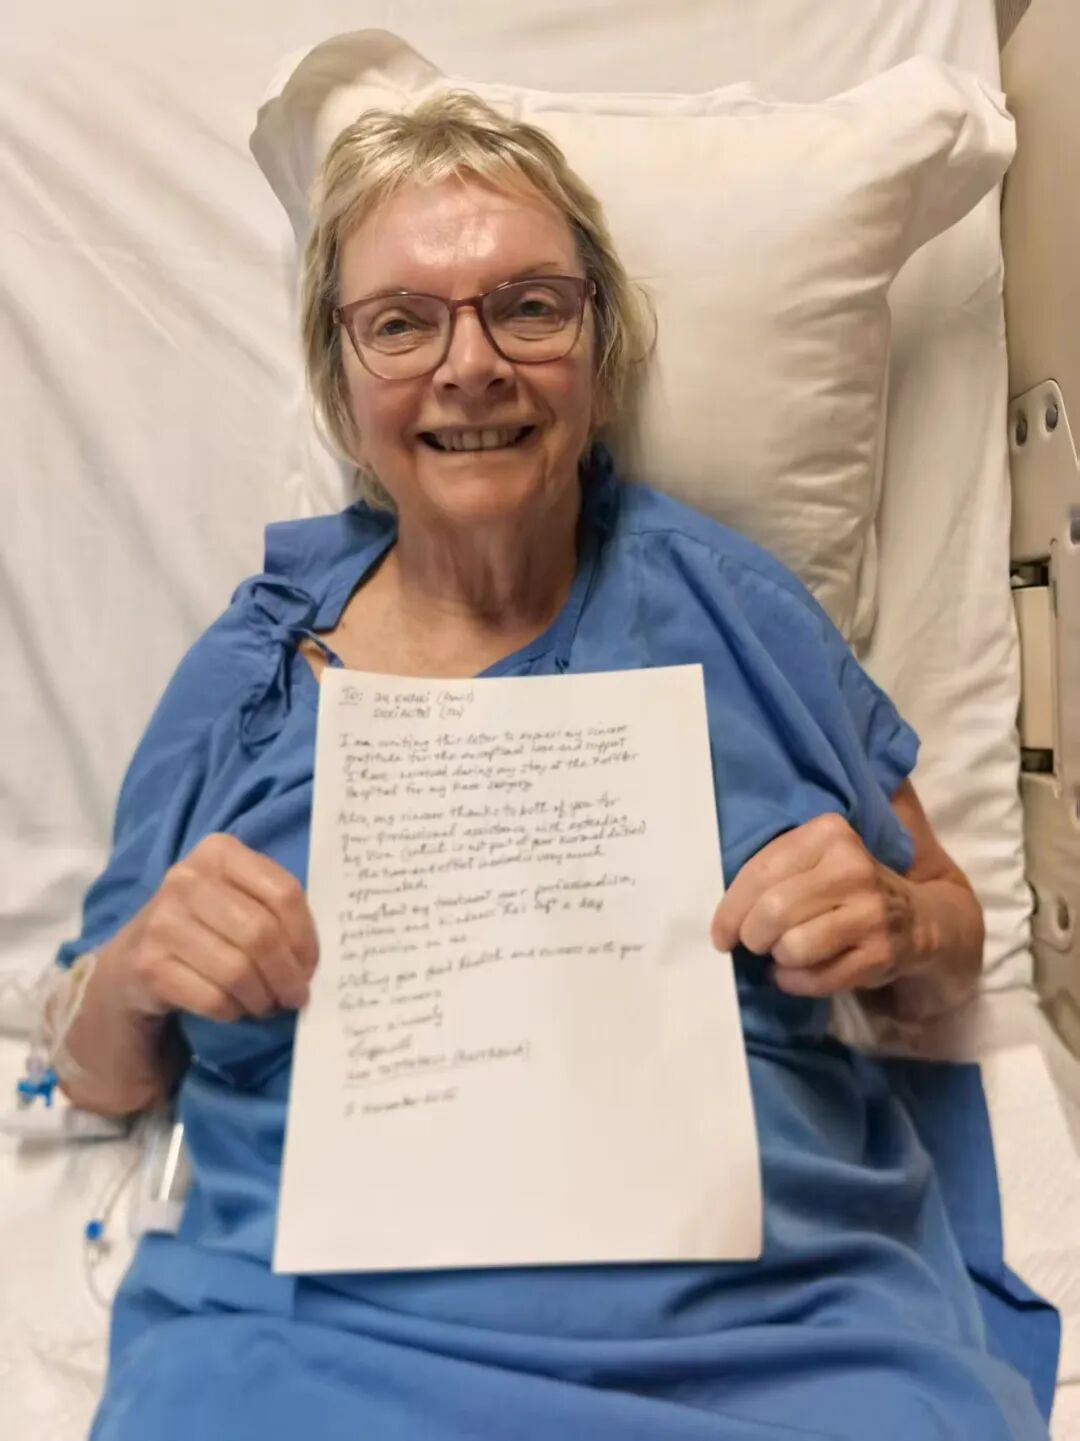 To:
I am writing this letter to express my sincere
gratitude for the exceptional care and support
I have received during my stay at the
Hospital for my knee surgery.
Also, my sincere thanks to both of you for
your professional assistance with extending
my visa (which is not part of your normal duties)
- the time and effort involved is very much
appreciated.
Throughout my treatment your professionalism,
patience and kindness has left a deep
impression on me.
Wishing you good health and success with your
future careers
Yours sincerely